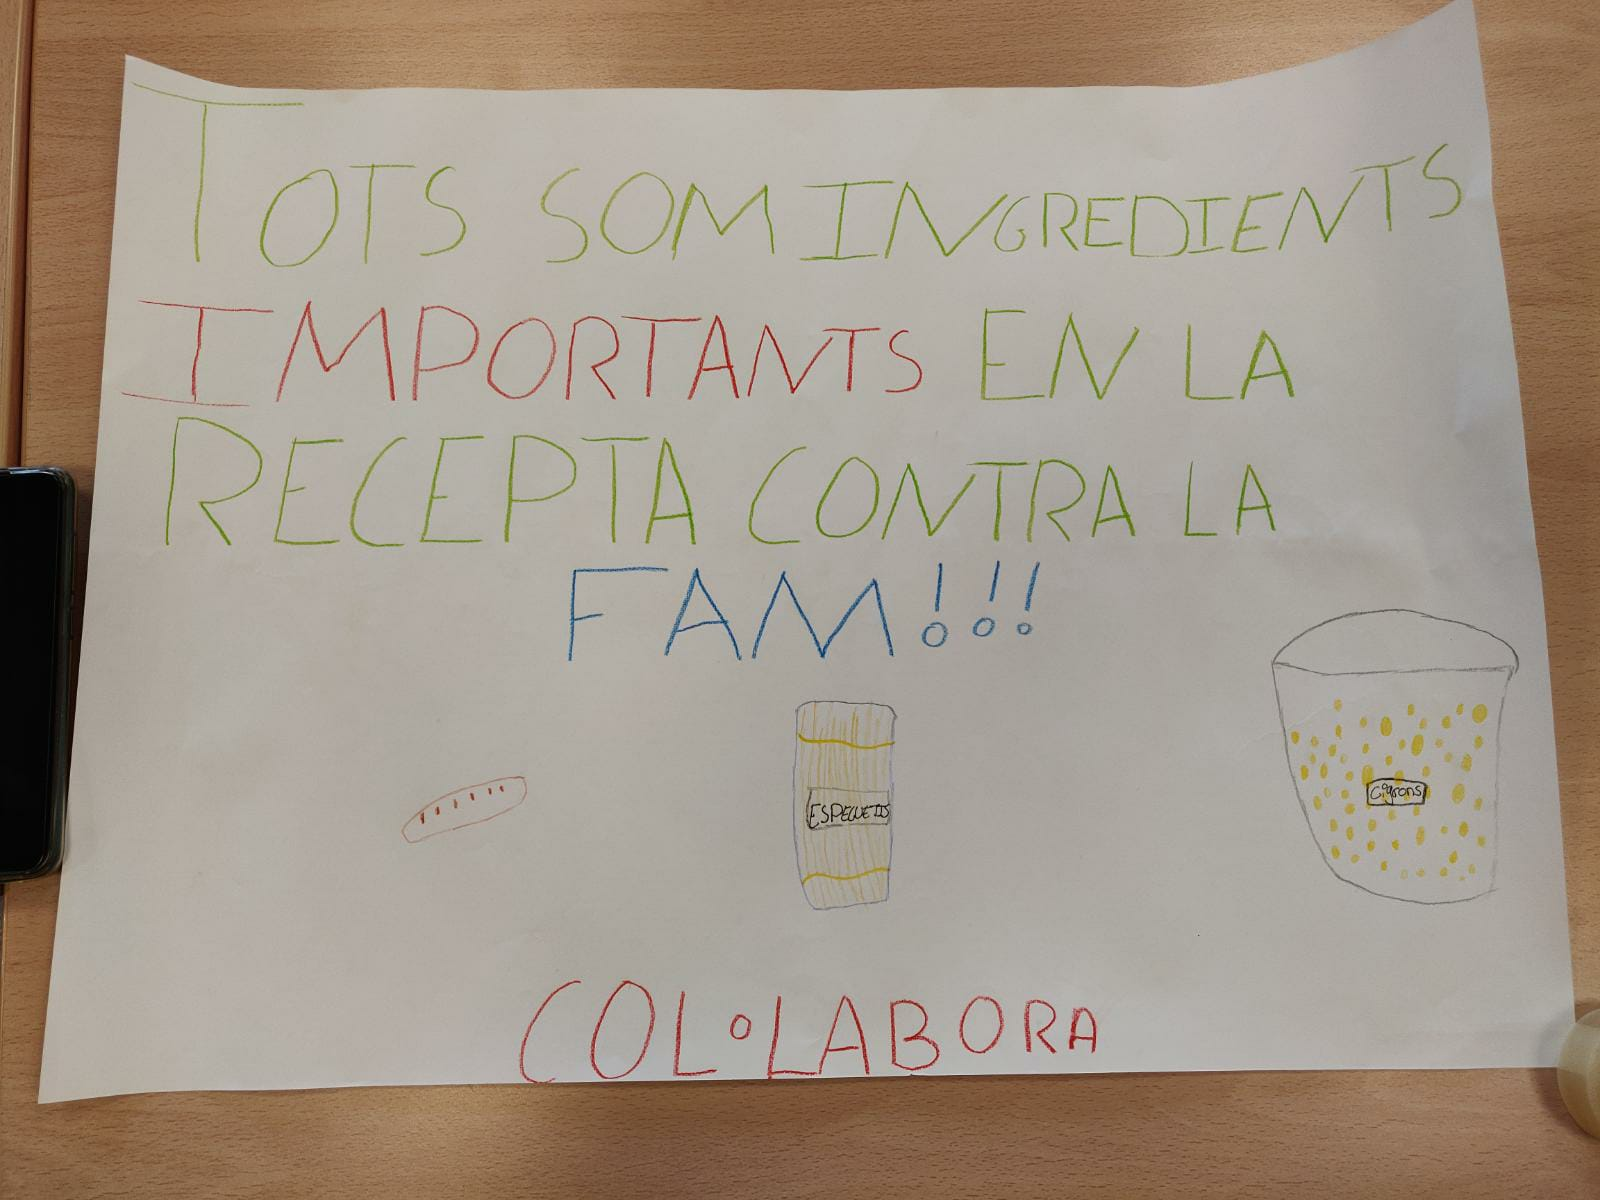 TOTS SOM INGREDIENTS
IMPORTANTS EN LA
RECEPTA CONTRA LA
FAM!!!
ESPEGUETIS
Cigrons
COL·LABORA